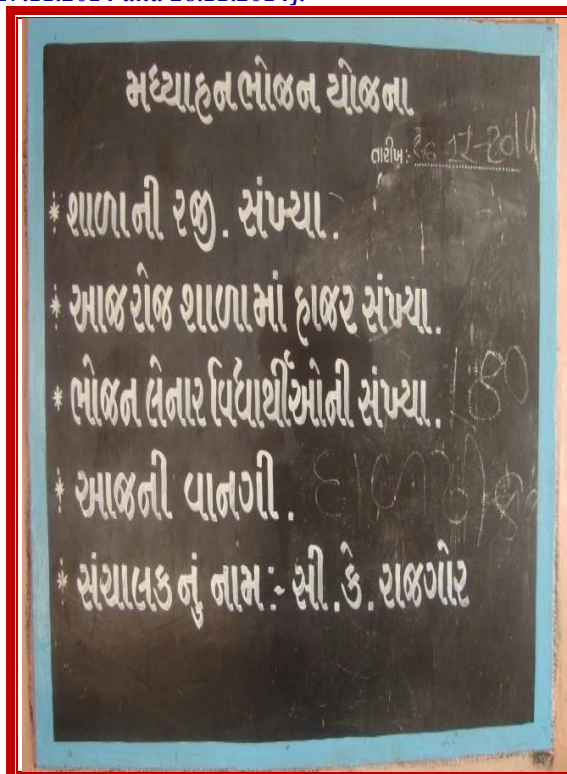 મધ્યાહન ભોજન યોજના
તારીખ:
* શાળાની રજી. સંખ્યા.
* આજ રોજ શાળામાં હાજર સંખ્યા.
* ભોજન લેનાર વિદ્યાર્થીઓની સંખ્યા. 180
* આજની વાનગી.
* સંચાલકનું નામ :- સી.કે. રાજગોર